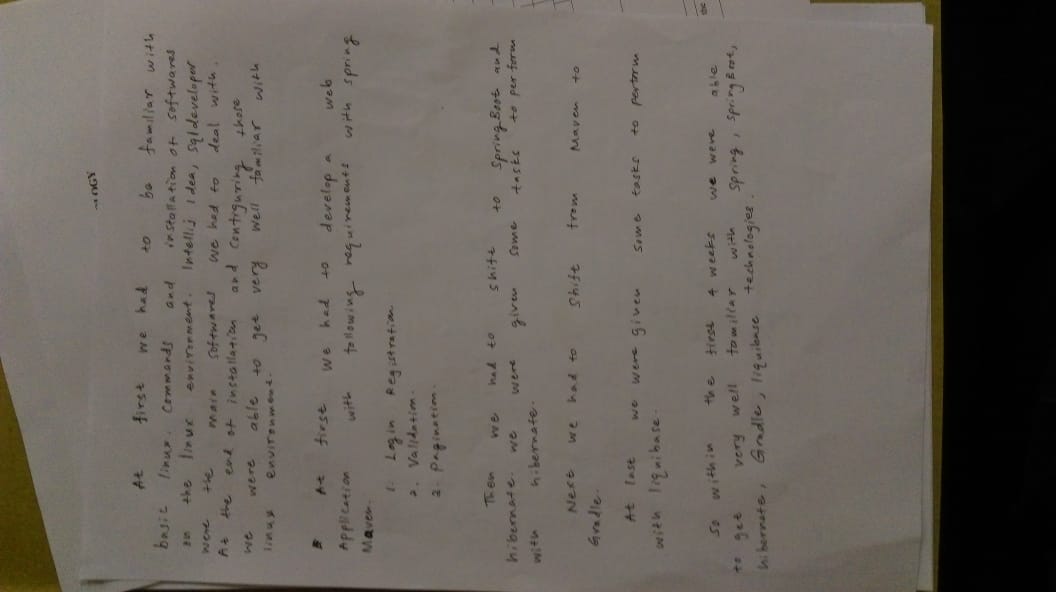 OGY
At first we had to be familiar with
basic linux commands and installation of softwares
on the linux environment. Intellij Idea, sqldeveloper
were the main softwares we had to deal with.
At the end of installation and configuring those
we were able to get very well familiar with
linux environment.
At first we had to develop a web
Application with following requirements with spring
Maven.
1. Login Registration
2. Validation.
3. Pagination.
Then we had to shift to SpringBoot and
hibernate. we were given some tasks to perform
with hibernate.
Next we had to shift from Maven to
Gradle.
At last we were given some tasks to perform
with liquibase.
So within the first 4 weeks we were able
to get very well familiar with Spring, SpringBoot,
hibernate, Gradle, liquibase technologies.